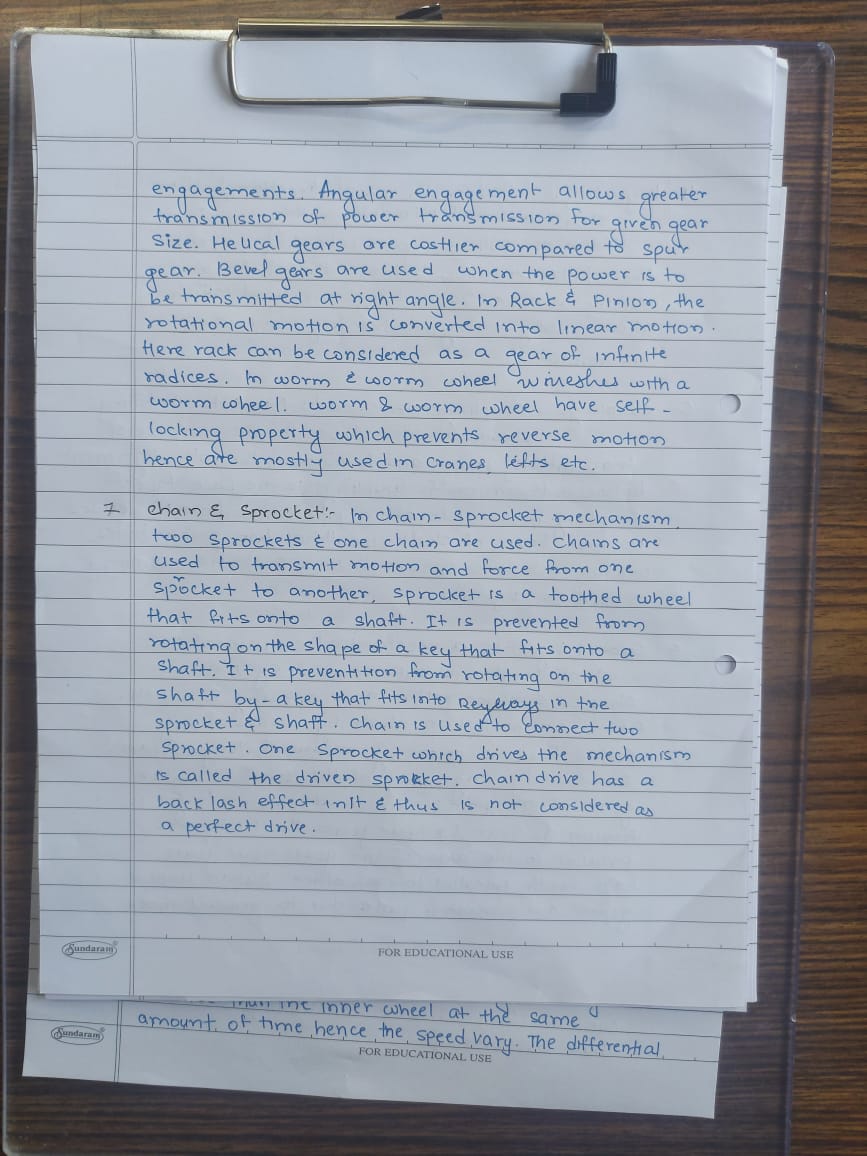 engagements. Angular engagement allows greater
transmission of power transmission for given gear
size. Helical gears are costlier compared to spur
gear. Bevel gears are used when the power is to
be transmitted at right angle. In Rack & Pinion, the
rotational motion is converted into linear motion.
Here rack can be considered as a gear of infinite
radices. In worm & worm wheel with a
worm wheel. worm & worm wheel have self-
locking property which prevents reverse motion
hence are mostly used in cranes, lifts etc.
7 chain & Sprocket:- In chain-sprocket mechanism
two sprockets & one chain are used. Chains are
used to transmit motion and force from one
sprocket to another, sprocket is a toothed wheel
that fits onto a shaft. It is prevented from
rotating on the shape of a key that fits onto a
shaft. It is preventition from rotating on the
shaft by-a key that fits into Keyways in the
sprocket & shaft. Chain is used to connect two
sprocket. One sprocket which drives the mechanism
is called the driven sprokket. Chain drive has a
back lash effect init & thus is not considered as
a perfect drive.
Sundaram
FOR EDUCATIONAL USE
the inner wheel at the same
amount of time hence the speed vary. The differential
Sundaram
FOR EDUCATIONAL USE